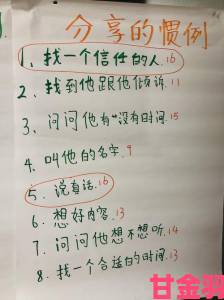 分享的惯例
1、找一个信任的人 16
2、找到他跟他倾诉 11
3、问问他有“没有时间 15
4、叫他的名字 9
5、说真话 16
6、想好内容 13
7、问问他想不想听 14
8、找一个合适的时间 13
甘金羽